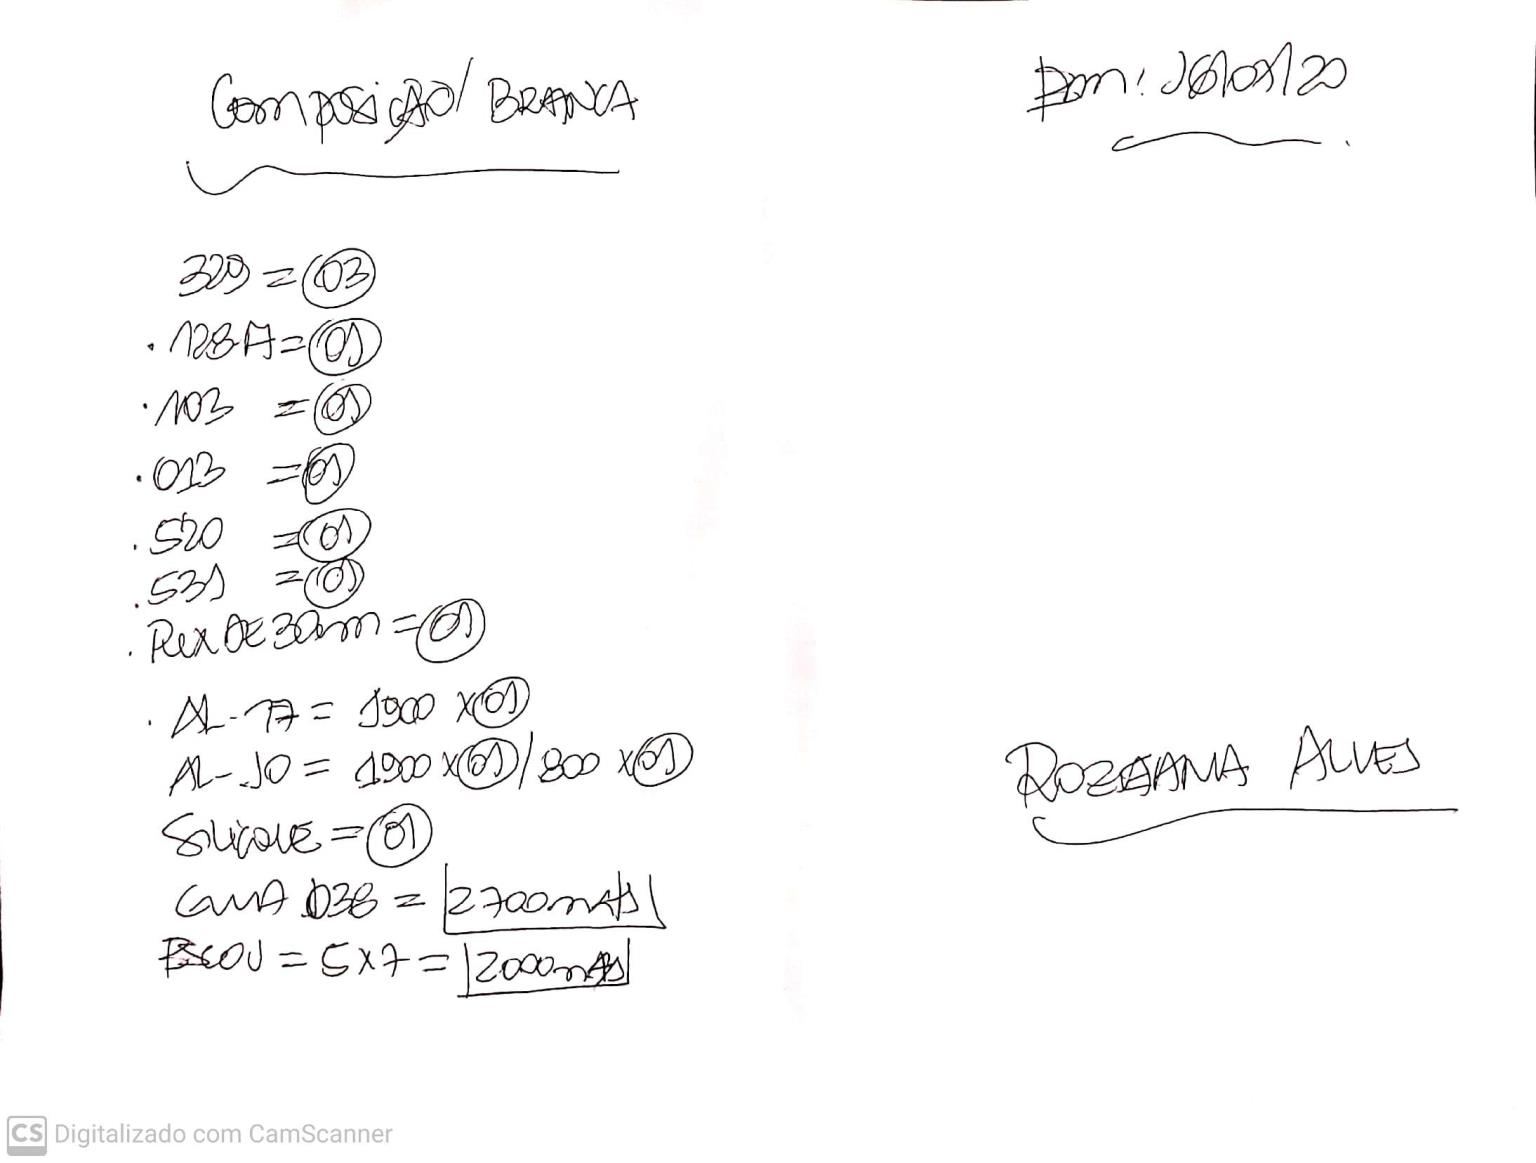 Composição/ BRANCA
329 = 03
. 128 A = 01
. 103 = 01
. 013 = 01
. 520 = 01
. 531 = 01
. Pex DE 30mm = 01
. AL-17 = 1900 x 01
AL-10 = 1900 x 01 / 800 x 01
Silicone = 01
Guia 038 = 2700 mts
Escov = 5x7 = 12000 mts
ALVES
CS Digitalizado com CamScanner